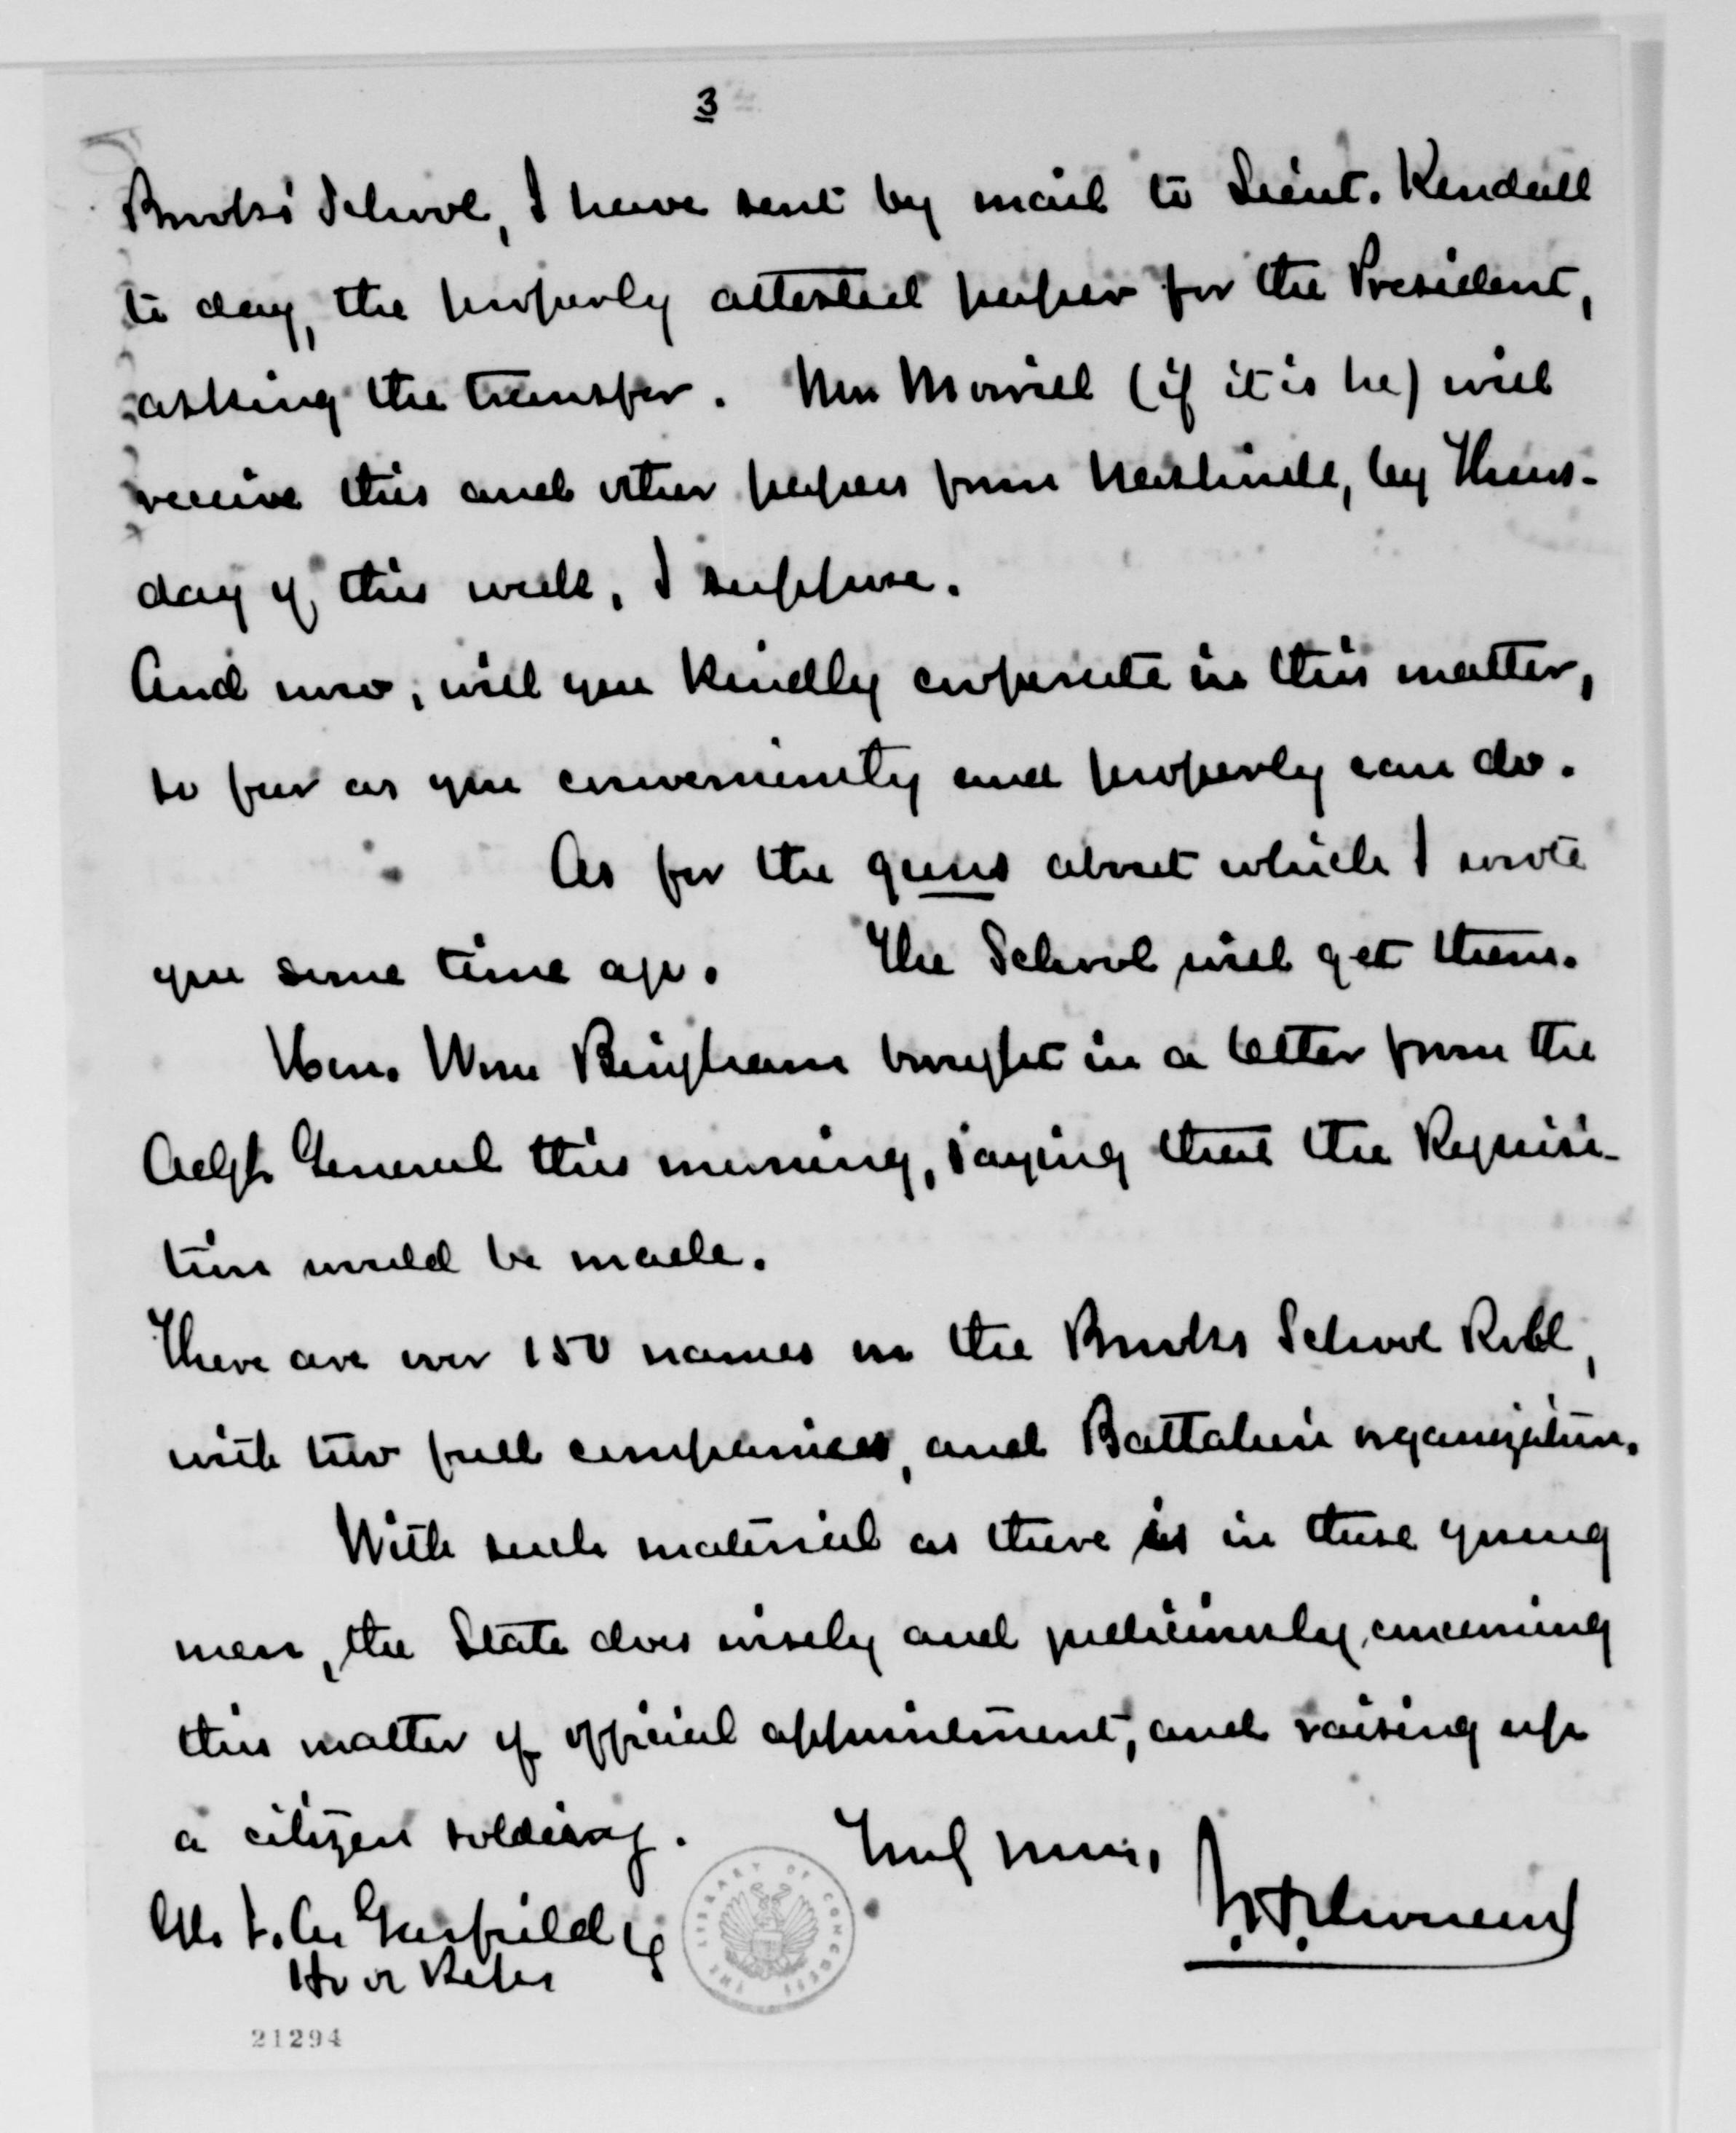 3
Brooks' School, I have sent by mail to Lieut. Kendall
to day, the properly attested paper for the President,
asking the transfer. Mr Morrill (if it is he) will
receive this and other papers from Nashville, by Thurs-
day of this week, I suppose.
And now, will you kindly cooperate in this matter,
so far as you conveniently and properly can do.
As for the guns about which I wrote
you some time ago. The School will get them.
Hon. Wm Bingham brought in a letter from the
Adjt General this morning, saying that the Requisi-
tion would be made.
There are over 150 names on the Brooks School Roll,
with two full companies, and Battalion organization.
With such material as there is in these young
men, the State does wisely and judiciously, concerning
this matter of official appointment, and raising up
a citizen soldiery.
Truly yours,
Gen. J. A. Garfield
Ho of Reps
THE LIBRARY OF CONGRESS
21294